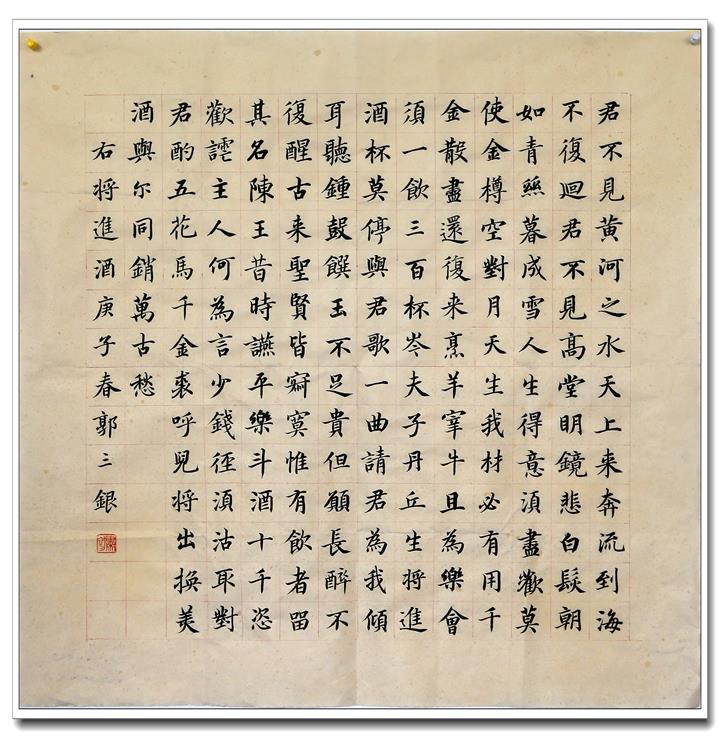 君不見黄河之水天上来奔流到海
不復迴君不見高堂明鏡悲白髮朝
如青絲暮成雪人生得意須盡歡莫
使金樽空對月天生我材必有用千
金散盡還復来烹羊宰牛且為樂會
須一飲三百杯岑夫子丹丘生将進
酒杯莫停與君歌一曲請君為我傾
耳聽鍾鼓饌玉不足貴但願長醉不
復醒古来聖賢皆寂寞惟有飲者留
其名陳王昔時讌平樂斗酒十千恣
歡謔主人何為言少錢徑須沽取對
君酌五花馬千金裘呼兒将出換美
酒與尔同銷萬古愁
右将進酒庚子春郭三銀